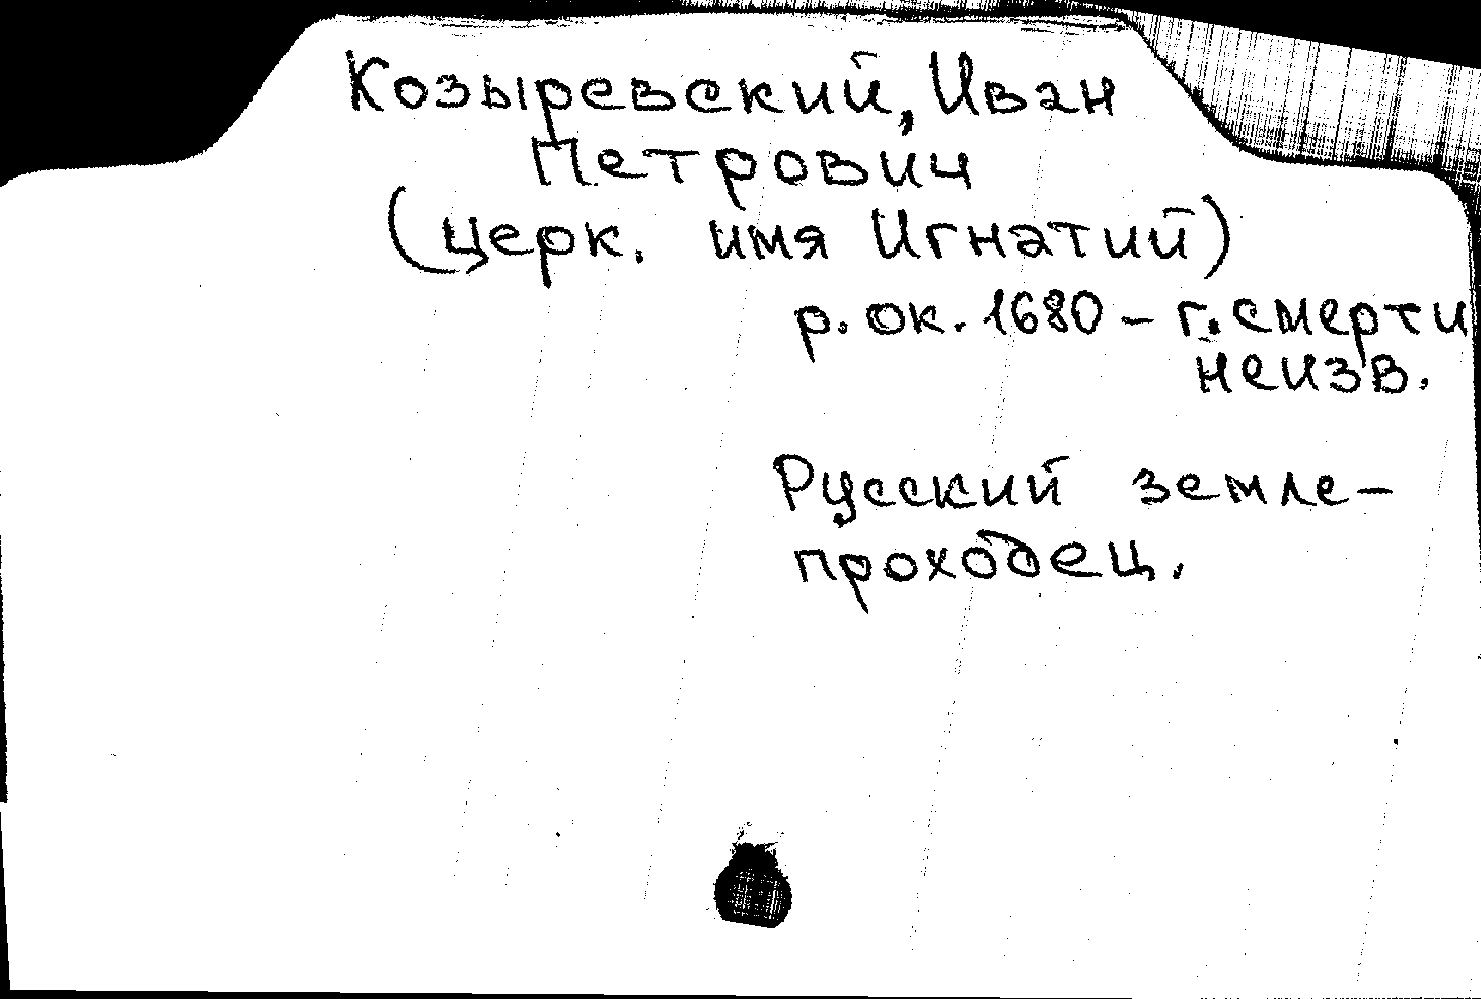 Козыревский, Иван
Петрович
(церк. имя Игнатий)
р. ок. 1680 – г. смерти
неизв.
Русский земле-
проходец.